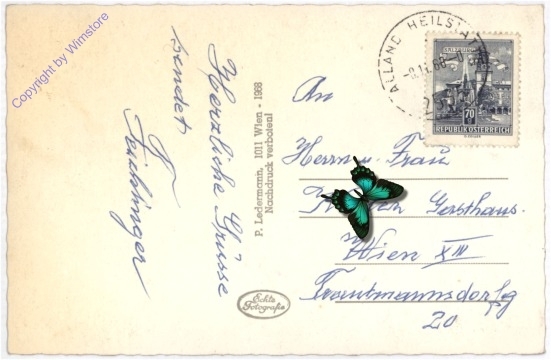 Copyright by Wimstore
Herzliche Grüsse
sendet
P. Ledermann, 1011 Wien - 1968
Nachdruck verboten!
Echte
Fotografie
ALLAND HEILSTÄT
SALZBURG
70
REPUBLIK ÖSTERREICH
An
Herrn u. Frau
Gersthaus.
Wien XIII
Trautmannsdorfg
20